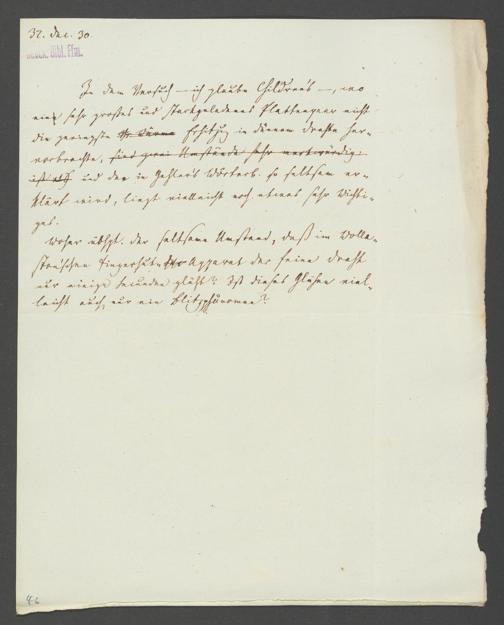 31. Dec. 30.
In dem Versuch — ich glaube Children's —, wo
ein sehr großes und starkgeladenes Plattenpaar nicht
die geringste Erhitzung in dünnem Drahte her-
vorbrachte, sind zwei Umstände sehr merkwürdig:
und der in Gehler's Wörterb. so seltsam er-
klärt wird, liegt vielleicht noch etwas sehr Wichti-
ges.
Woher übhpt. der seltsame Umstand, daß im Wolla-
ston'schen Fingerhut-Apparat der feine Draht
nur einige Secunden glüht? Ist dieses Glühen viel-
leicht auch nur ein Blitzphänomen?
46